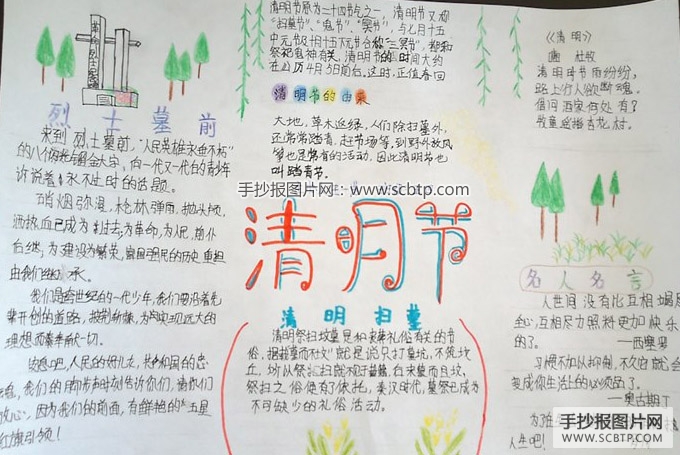 烈士墓前
来到烈士墓前，"人民英雄永垂不朽"
的八个闪光镏金大字，向一代又一代的青少年
诉说着永不止时的话题。
硝烟弥漫，枪林弹雨，抛头颅，
洒热血已成为过去，为革命，为人民，前仆
后继，为建设为繁荣，富国强民的历史重担
由我们继承。
我们是跨世纪的一代少年，我们要沿着先
辈开创的道路，披荆斩棘，为实现远大的
理想而奉献一切。
我们的前面，有鲜艳的"五星
红旗引领！
清明节原为二十四节气之一，清明节又称
"扫墓节"、"鬼节"、"冥节"，与七月十五
中元节及十月十五下元节合称"三冥节"，都和
祭祀鬼神有关，清明节的时间大约
在公历4月5日前后，这时，正值春回
清明节的由来
大地，草木返绿，人们除扫墓外，
还常常踏青、赶节场等，到野外放风
筝也是常有的活动，因此清明节也
叫踏青节。
手抄报图片网:www.scbtp.com
清明节
清明扫墓
清明祭扫坟墓是和丧葬礼俗有关的节
俗，据载"墓而不坟"就是说只打墓坑，不筑坟
丘，
祭扫之俗便有了依托，秦汉时代，墓祭已成为
不可缺少的礼俗活动。
《清明》
唐 杜牧
清明时节雨纷纷，
路上行人欲断魂。
借问酒家何处有？
牧童遥指杏花村。
名人名言
人世间没有比互相竭尽
全心，互相尽力照料更加快乐
的了。——西塞罗
习惯不加以抑制，不久它就会
变成你生活上的必须品了。
——奥古斯丁
人生吧！
手抄报图片网
WWW.SCBTP.COM